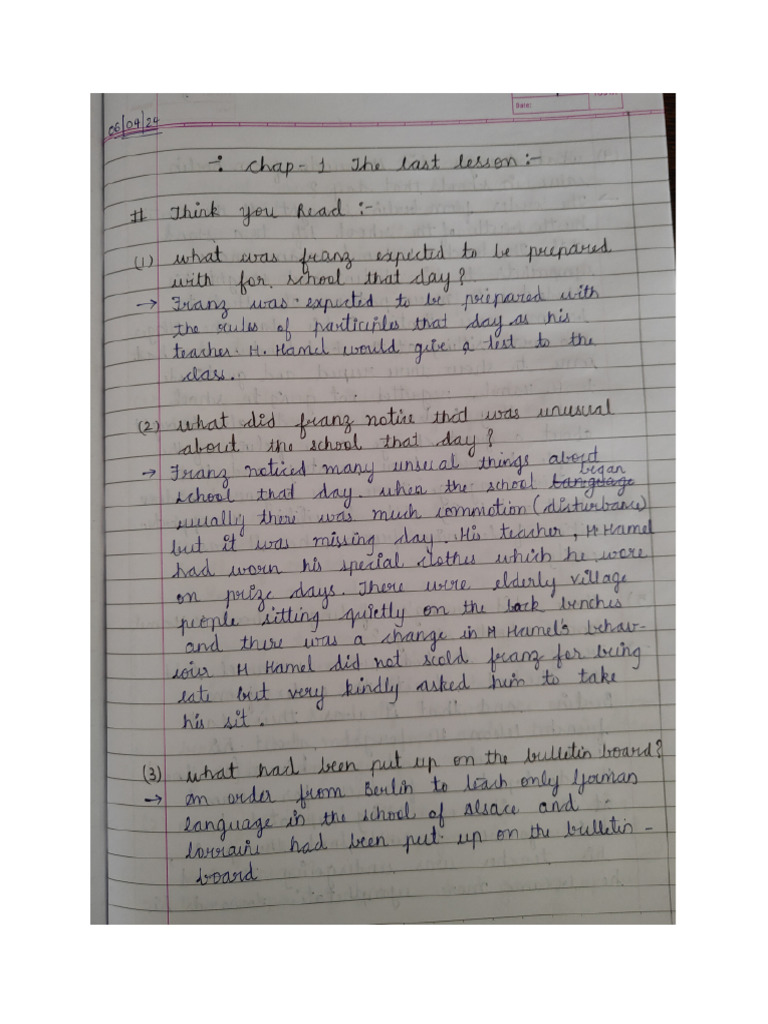 Date:
06/04/24
÷ Chap-1 The last lesson:-
# Think you Read :-
(1) what was franz expected to be prepared
with for school that day?
→ Franz was expected to be prepared with
the rules of participles that day as his
teacher M. Hamel would give a test to the
class.
(2) what did franz notice that was unusual
about the school that day?
→ Franz noticed many unsual things about
school that day. when the school began
usually there was much commotion (disturbance)
but it was missing day. His teacher, M Hamel
had worn his special clothes which he wore
on prize days. There were elderly village
people sitting quietly on the back benches
and there was a change in M Hamel's behav-
iour M Hamel did not scold franz for being
late but very kindly asked him to take
his sit.
(3) what had been put up on the bulletin board?
→ an order from Berlin to teach only German
language in the school of Alsace and
lorraine had been put up on the bulletin -
board